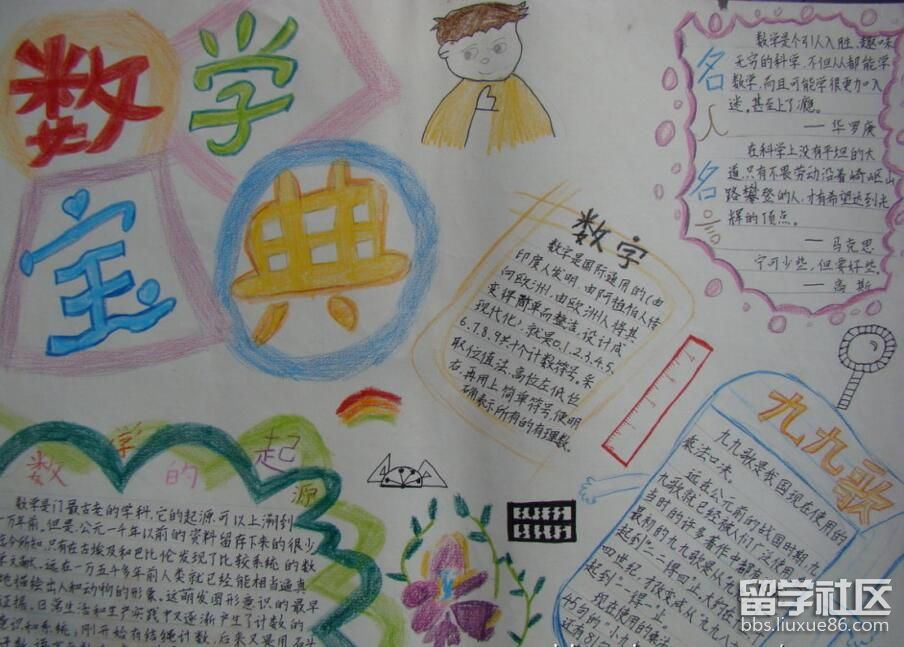 数学
宝典
名人名言
数学是个引人入胜、趣味
无穷的科学,不但人人都能学
数学,而且可能学很更加入
迷。甚至上了瘾。
— 华罗庚
在科学上没有平坦的大
道,只有不畏劳动沿着崎岖山
路攀登的人,才有希望达到光
辉的顶点。
— 马克思
宁可少些,但要好些。
— 高斯
数字
数字是国际通用的(由
印度人发明,由阿拉伯人传
向欧洲,由欧洲人将其
变得简单而整洁,设计成
现代化,就是0.1.2.3.4.5.
6.7.8.9共十个计数符号。采
取位值法,高位左低位
右,再用上简单符号,便明
确表示所有的有理数。
九九歌
九九歌是我国现在使用的
乘法口决。
远在公元前的战国时期,九
九歌就已经被人们广泛使用,
当时的许多著作中都有
最初的九九歌是从
起到二二得四止,大约在
四世纪,才改变成从九九八
起到一一得一止。
现在使用的乘法
45句的“小九
还有81
数学的起源
数学是门最古老的学科,它的起源可以上溯到
一万年前,但是,公元一千年以前的资料留存下来的很少。
今所知,只有在古埃及和巴比伦发现了比较系统的数
学文献。远在一万五千多年前人类就已经能相当逼真
地描绘出人和动物的形象。这萌发图形意识的最早
证据。日常生活和生产实践中又逐渐产生了计数的
意识和系统,刚开始有结绳计数,后来又要用石头
留学社区
bbs.liuxue86.com